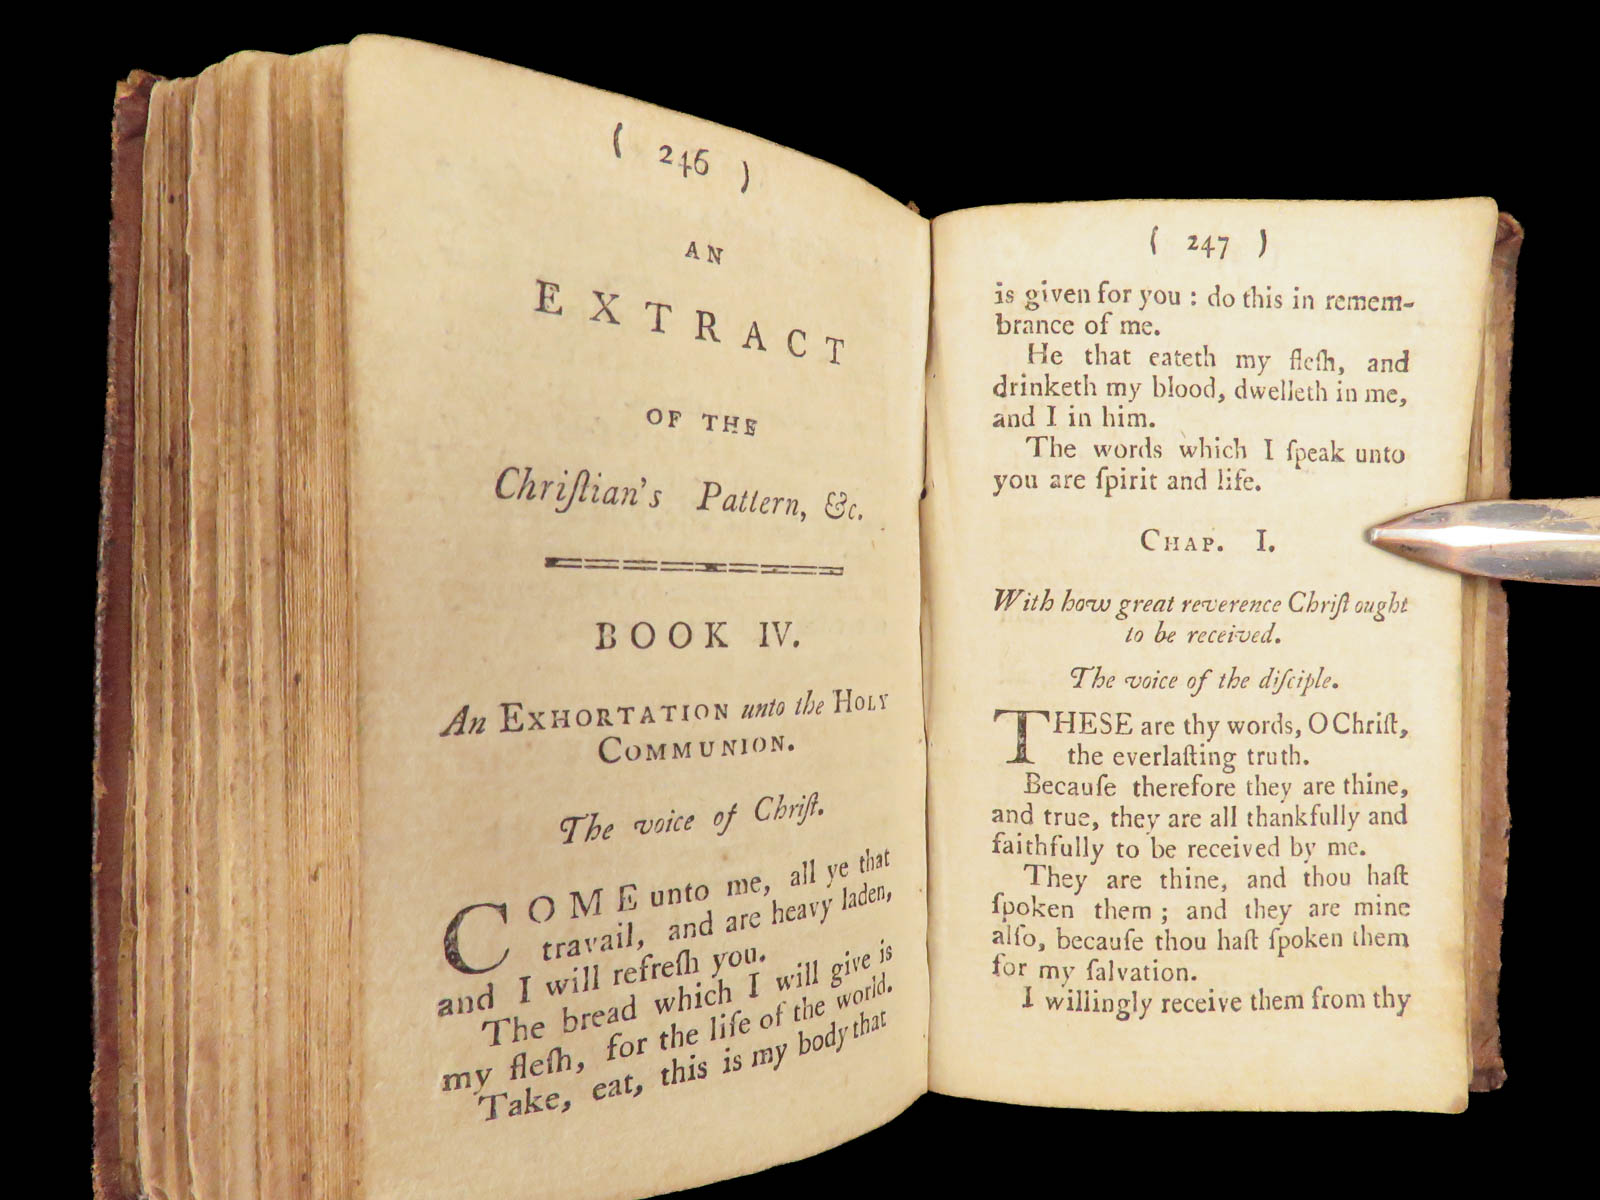 ( 246 )
AN
EXTRACT
OF THE
Chriſtian's Pattern, &c.
BOOK IV.
An EXHORTATION unto the HOLY
COMMUNION.
The voice of Chriſt.
COME unto me, all ye that
travail, and are heavy laden,
and I will refreſh you.
The bread which I will give is
my fleſh, for the life of the world.
Take, eat, this is my body that
( 247 )
is given for you : do this in remem-
brance of me.
He that eateth my fleſh, and
drinketh my blood, dwelleth in me,
and I in him.
The words which I ſpeak unto
you are ſpirit and life.
CHAP. I.
With how great reverence Chriſt ought
to be received.
The voice of the diſciple.
THESE are thy words, O Chriſt,
the everlaſting truth.
Becauſe therefore they are thine,
and true, they are all thankfully and
faithfully to be received by me.
They are thine, and thou haſt
ſpoken them ; and they are mine
alſo, becauſe thou haſt ſpoken them
for my ſalvation.
I willingly receive them from thy